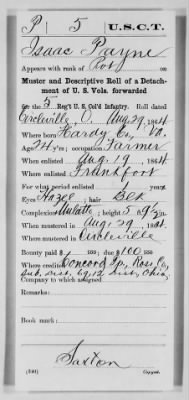 P 5 U.S.C.T.
Isaac Payne
Appears with rank of Rct on
Muster and Descriptive Roll of a Detach-
ment of U. S. Vols. forwarded
for the 5 Reg't U. S. Col'd Infantry. Roll dated
Circleville, O. Aug 29, 1864
Where born Hardy Co, Va.
Age 24 y'rs; occupation Farmer
When enlisted Aug. 19, 1864
Where enlisted Frankfort
For what period enlisted 1 years
Eyes Hazel; hair Blk
Complexion Mulatto; height 5 ft.
When mustered in Aug. 29, 1864
Where mustered in Circleville
Bounty paid $ ; due $ 100
Where credited Concord Tp, Ross Co,
sub. dist. 69, 12 dist, Ohio
Company to which assigned
Remarks:
Book mark:
Saxton
Copyist.